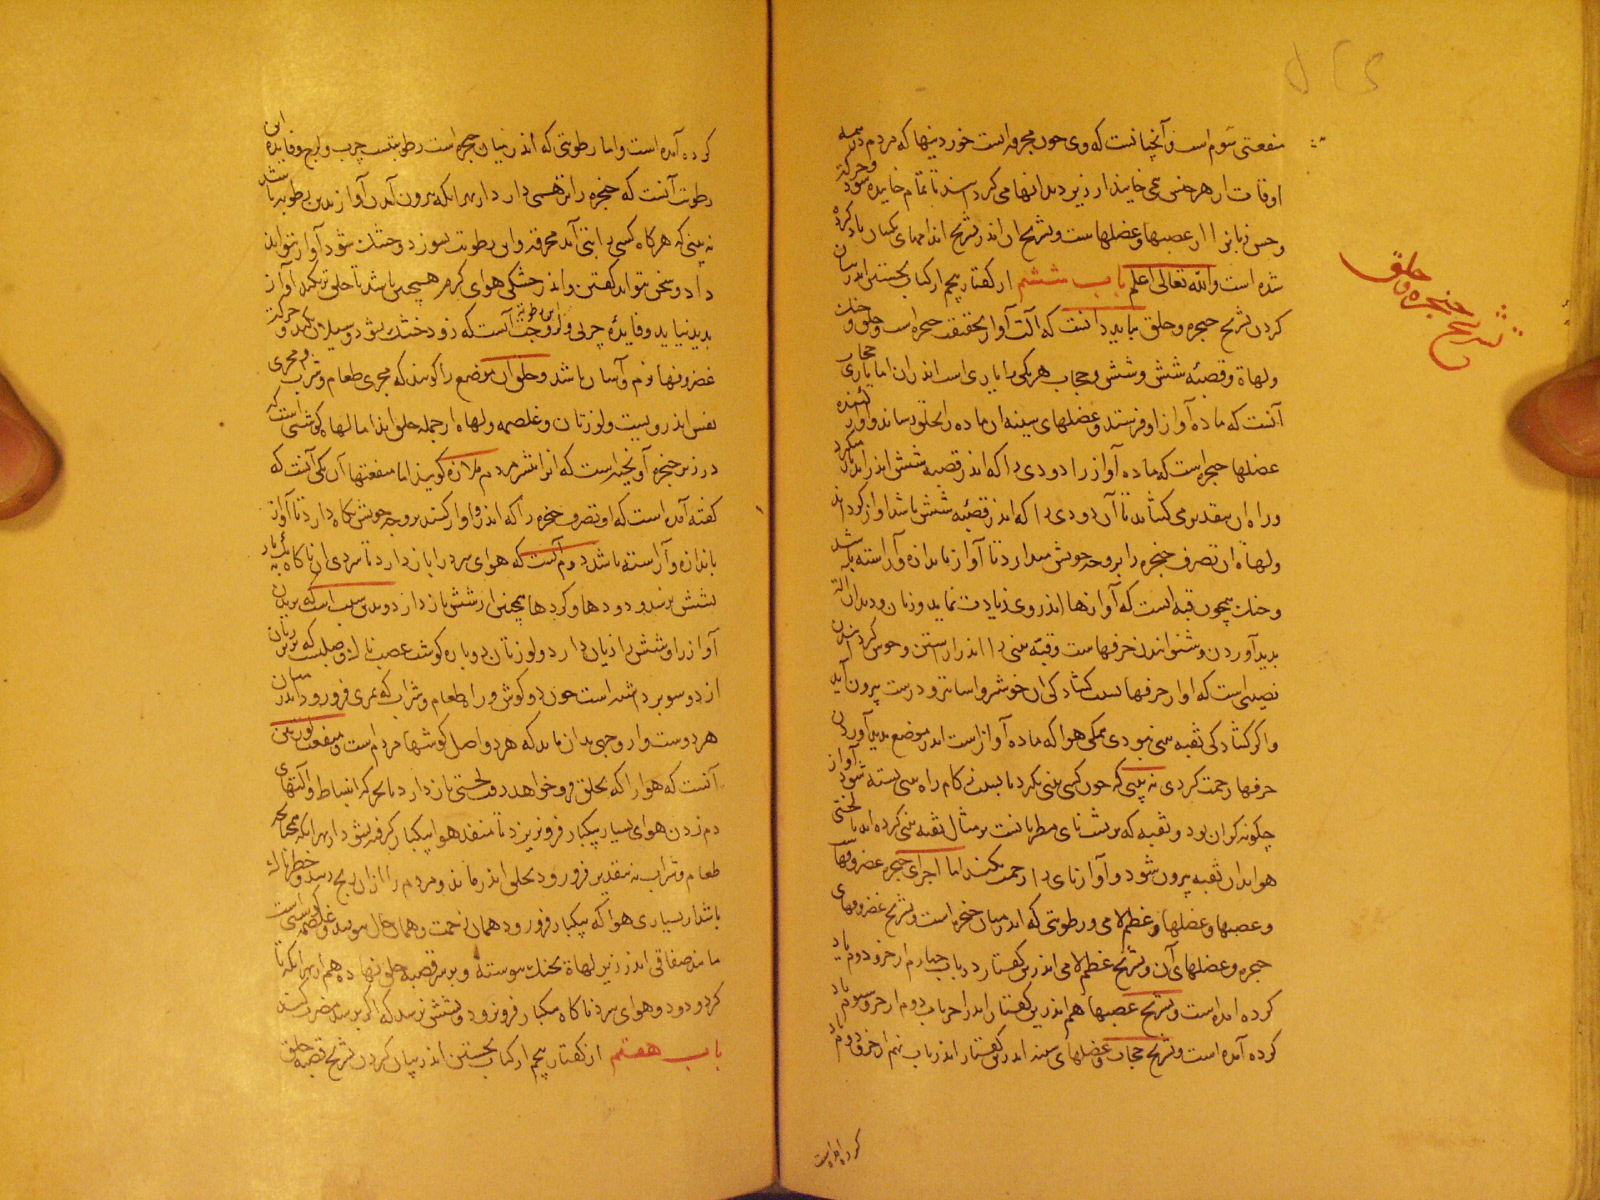 منفعتی سوم است و آنچنانست که وی چون مجرفه است خوردنیها که مردم در همه
اوقات از هر جنس می خاید از زیر دندانها می کرد سد تا تمام خاییده شود و حرکت
و حس زبان از عصبها و عضلهاست و تشریح ان اندر تشریح اندامهای یکسان یاد کرده
شده است والله تعالی اعلم باب ششم از کفتار پنجم از کتاب نخستین اندر بیان
کردن تشریح حنجره و حلق بباید دانست که آلت آواز بحقیقت حنجره است و حلق و حنک
ولهاة و قصبه شش و شش و حجاب هر یکی را یاری است اندر ان اما یاری حجاب
آنست که ماده آواز او فرستد و عضلهای سینه ان ماده را بحلق رساند و آواز کننده
عضلها حنجره است که ماده آواز را دودی را که اندر قصبه شش اندر اید
و راه ان بتقدیر می کشاید تا آن دودی را که اندر قصبه شش باشد اواز کرداند
ولهاة ان تصرف حنجره را بر وجه خویش میدارد تا آواز باندازه و آراسته باشد
و حنک همچون قبه است که آوازها اندر وی زیادت نماید و زبان و دندان آلة
بدید آوردن و شنوانیدن حرفهاست و قبه بینی را اندر اراستن و خوش کردانیدن
نصیبی است که اواز حرفها بسبب کشادکی ان خوشتر و اسانتر و درست بیرون آید
و اکر کشادکی ثقبه بینی نبودی همکی هوا که ماده آواز است اندر موضع بدید آوردن
حرفها زحمت کردی نه بینی که چون کسی بینی بکیرد یا بسبب زکام راه بینی بسته شود آواز
چکونه کران بود و ثقبه که بر پشت نای مطربانست بر مثال ثقبه بینی کرده اند تا لختی
هوا بدان ثقبه بیرون شود و آواز نای را زحمت نکند اما اجزای حنجره غضروفهاست
و عصبها و عضلها و عظم لامی و رطوبتی که اندر میان حنجره است و تشریح غضروفهای
حنجره و عضلهای آن و تشریح عظم لامی اندرین کفتار در باب چهارم از جزو دوم یاد
کرده امده است و تشریح عصبها هم اندرین کفتار اندر باب دوم از جزو سوم یاد
کرده آمده است و تشریح حجاب و عضلهای سینه اندرین کفتار اندر باب نهم از جزو دوم
تشریح حنجره و حلق
کرده امده است
کرده آمده است و اما رطوبتی که اندر میان حنجره است رطوبتیست چرب و لزج و فایده این
رطوبت آنست که حنجره را تر همی دارد از بهر انکه بیرون آمدن آواز بدین رطوبت باشد
نه بینی که هرکاه کسی را تبی آید محرقه و ان رطوبت بسوزد و خشک شود آواز نتواند
داد و سخن نتواند کفتن و اندر خشکی هوای کرم همچنین باشد تا حلق تر نکند آواز
بدید نیاید و فایده چربی و لزوجت این رطوبت آنست که زود خشک نشود و سیلان نکند و حرکت
غضروفها نرم و آسان باشد و حلق ان موضع را کویند که مجری طعام و شراب و مجری
نفس اندرویست و لوزتان و غلصمه ولهاة از جمله حلق اند اما لهاة کوشتی است که
در زبر حنجره آویخته است که انرا بشهر مردم ملازه کویند اما منفعتها آن یکی آنست که
کفته آمده است که او تصرف حنجره را که اندر اواز کند بر وجه خویش نکاه دارد تا آواز
باندازه و آراسته باشد دوم آنست که هوای سرد را باز دارد تا سردی ان ناکاه بیکبار
بشش نرسد و دودها و کردها همچنین از شش باز دارد و بدین سبب است که بریدن
آواز را و شش را زیان دارد و لوزتان دو پاره کوشت عصب ناک و صلبست که بر بن زبان
از دو سو بر داشته است چون دو کوش و راه طعام و شراب که بمری فرو رود اندر میان
هر دوست و از وجهی بدان ماند که هر دو اصل کوشها مردم است و منفعت لوزتین
آنست که هوا را که بحلق فرو خواهد رفت لختی باز دارد تا بحرکه انبساط و آلتهای
دم زدن هوای بسیار بیکبار فرو نریزد تا منفذ هوا بیکبار کرفته نشود از بهر انکه همچنانکه
طعام و شراب نه بتقدیر فرو رود بحلق اندر ماند و مردم را از ان رنج رسد و خطرناک
باشد از بسیاری هوا که بیکبار فرو رود همان زحمت و همان حال بود و غلصمه کوشتی است
مانند صفاقی اندر زیر لهاة بحنک پیوسته و بر سر قصبه حلق نهاده هم از بهر انکه تا
کرد و دود و هوای سرد ناکاه بیکبار فرو نرود و بشش نرسد که اکر برسد مضرت کند
باب هفتم از کفتار پنجم از کتاب نخستین اندر بیان کردن تشریح قصبه حلق